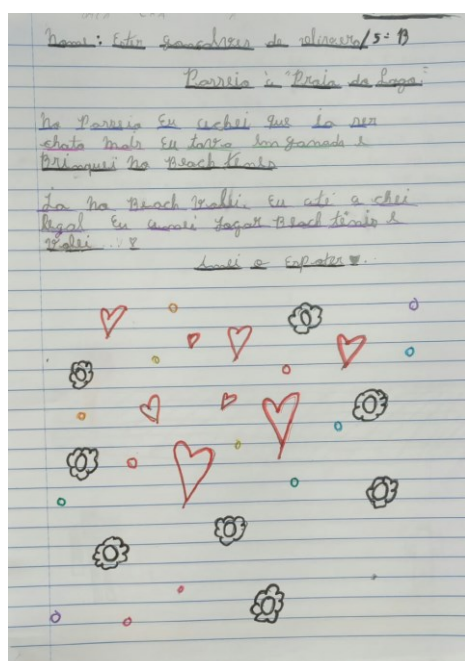 Nome: Ester gonçalves de oliveira / 5- B
Passeio à "Praia do Lago"
No Passeio Eu achei que ia ser
chato mais Eu tava Enganada e
Brinquei No Beach tênis
La No Beach Volêi. Eu até a chei
legal Eu amei Jogar Beach tênis e
Volei ...
Amei o Esporter ...